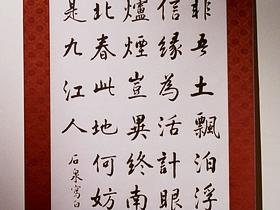 非吾土飄泊浮
信緣為活計眼
爐煙豈異終南
北春此地何妨
是九江人
石泉寫白